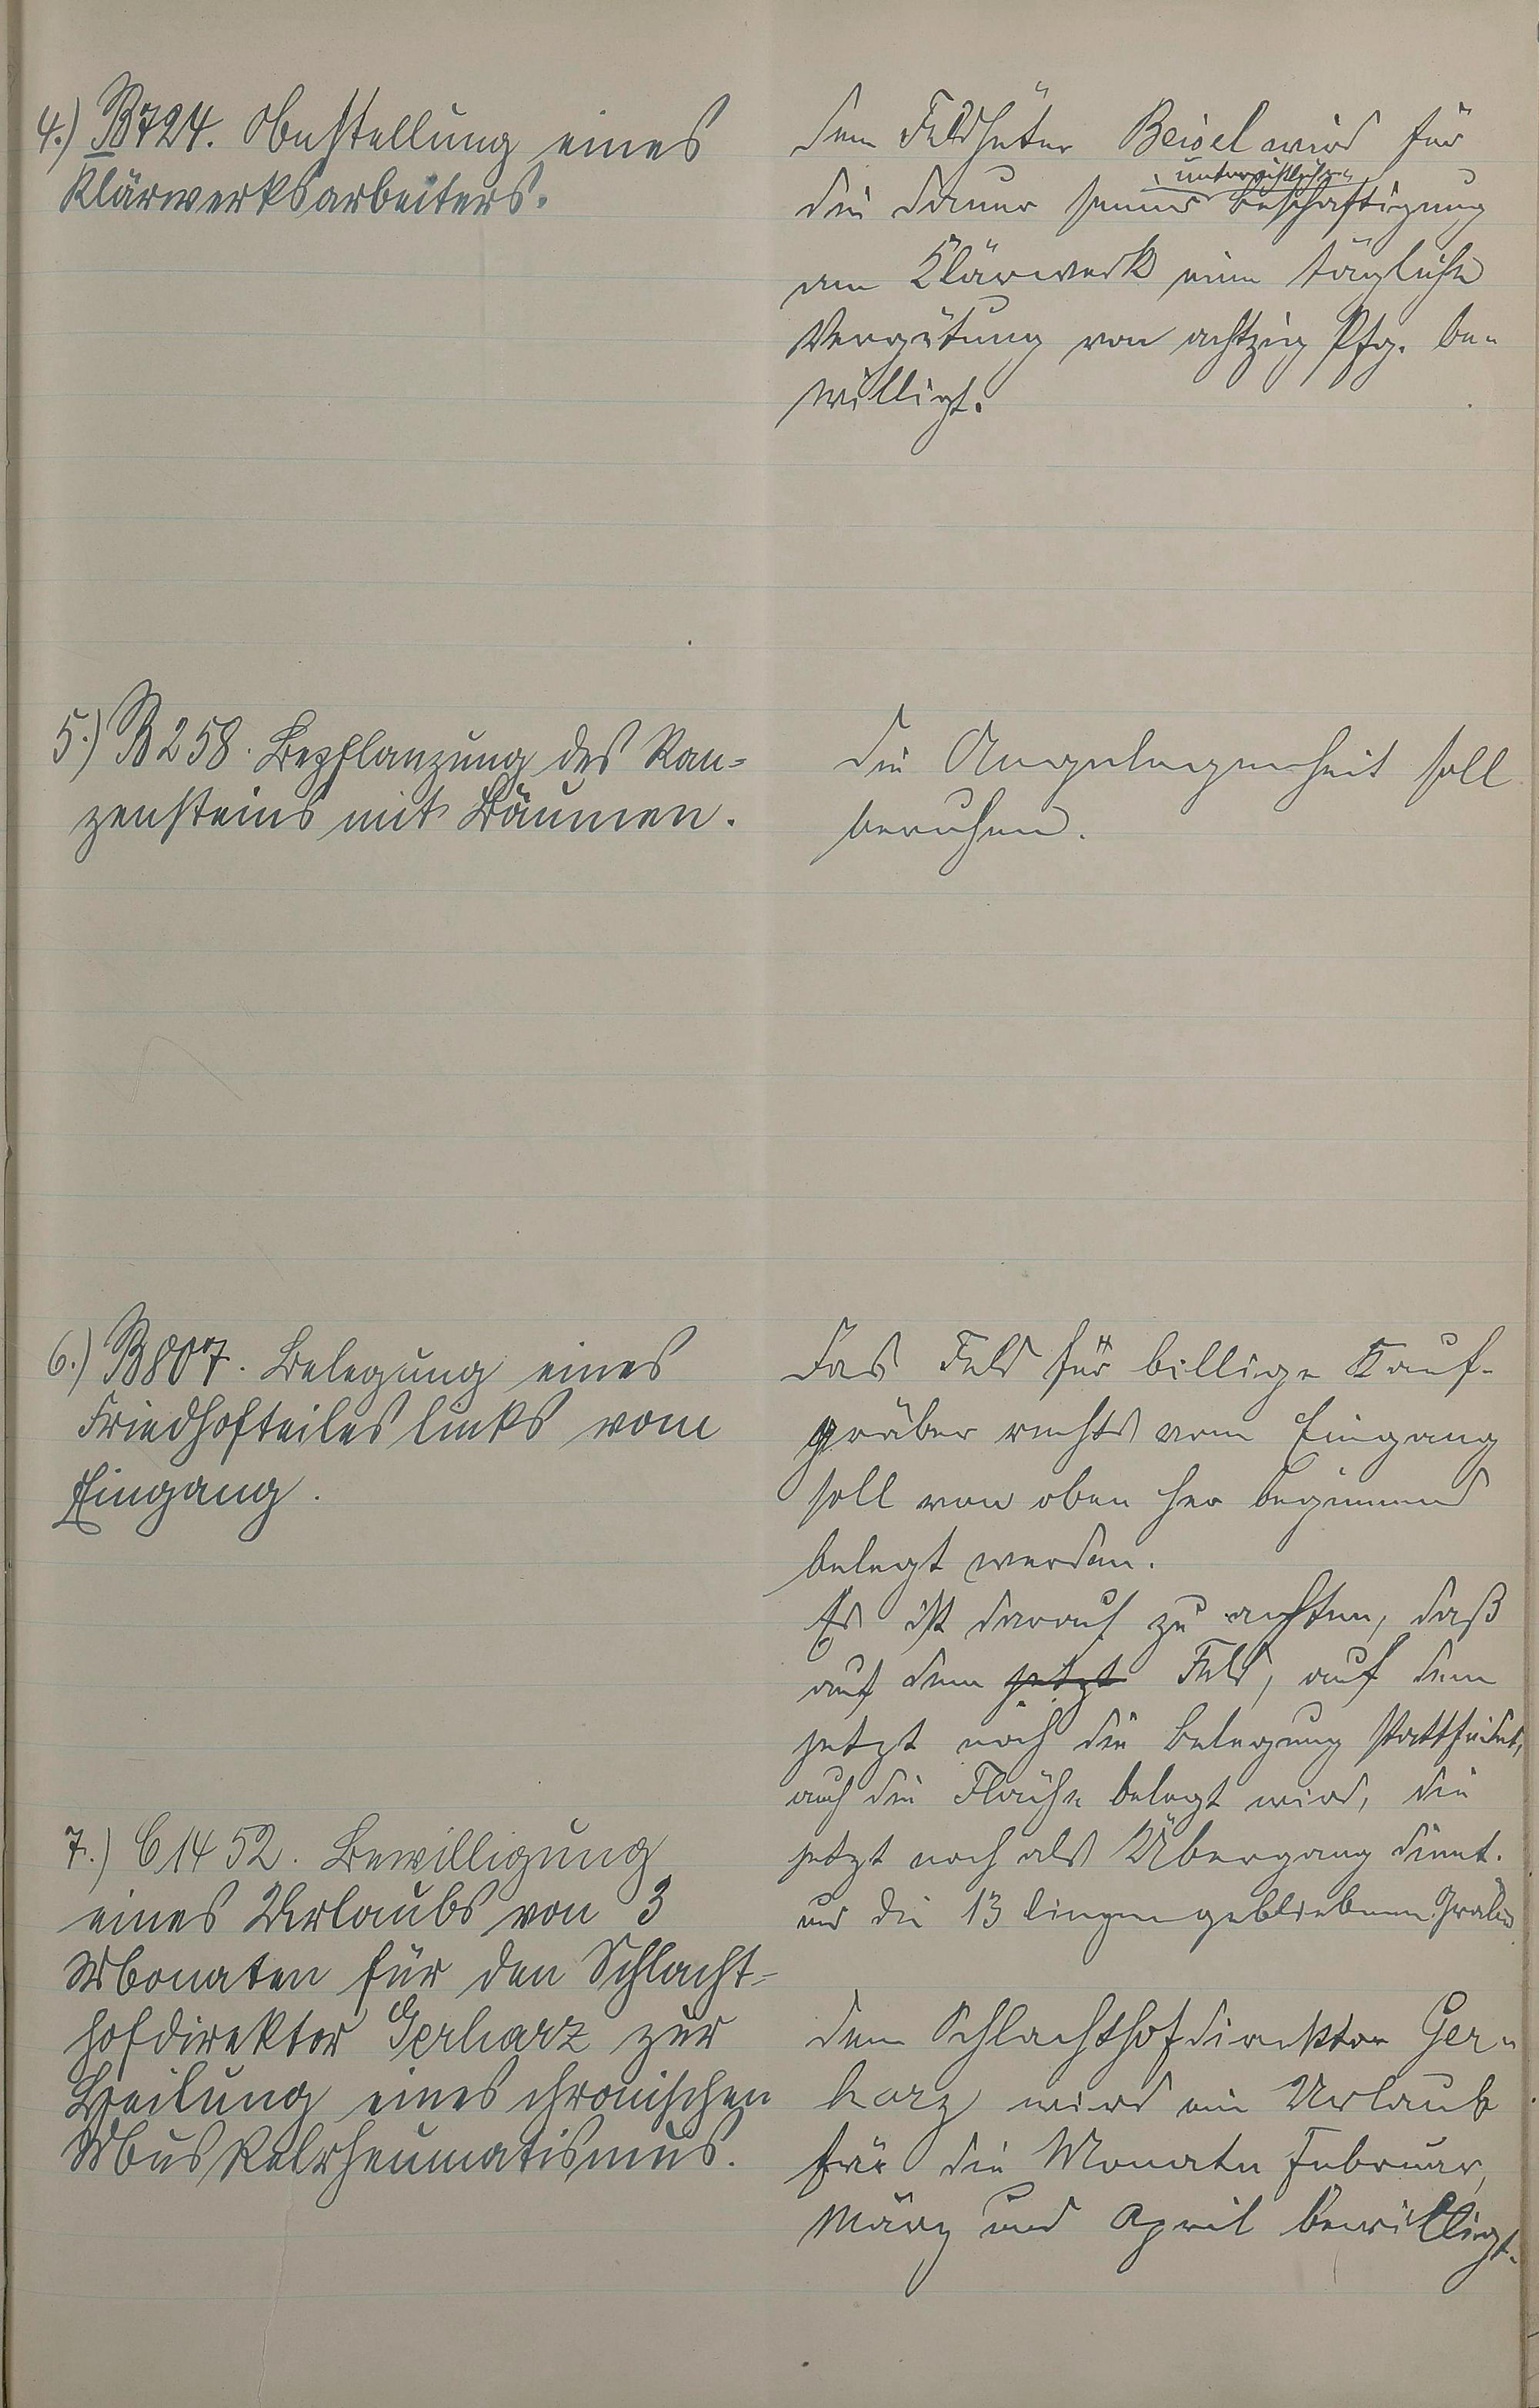 4.) B 724. Anstellung eines
Klärwerksarbeiters.
Dem Feldhüter Beisel wird für
die Dauer seiner Beschäftigung
am Klärwerk eine tägliche
Vergütung von achtzig Pfg. be-
willigt.
5.) B 258. Bepflanzung des Ran-
zensteins mit Bäumen.
Die Angelegenheit soll
beruhen.
6.) B 807. Belegung eines
Friedhofteiles links vom
Eingang.
Das Feld für billige Kauf-
gräber rechts vom Eingang
soll von oben her beginnend
belegt werden.
Es ist darauf zu achten, daß
auf dem jetzt Feld, auf dem
jetzt noch die Belegung stattfindet,
auch die Fläche belegt wird, die
jetzt noch als Übergang dient.
und die 13 liegengebliebenen Gräber
7.) C 1452. Bewilligung
eines Urlaubs von 3
Monaten für den Schlacht-
hofdirektor Gerharz zur
Heilung eines chronischen
Muskelrheumatismus.
Dem Schlachthofdirektor Ger-
harz wird ein Urlaub
für die Monate Februar,
März und April bewilligt.